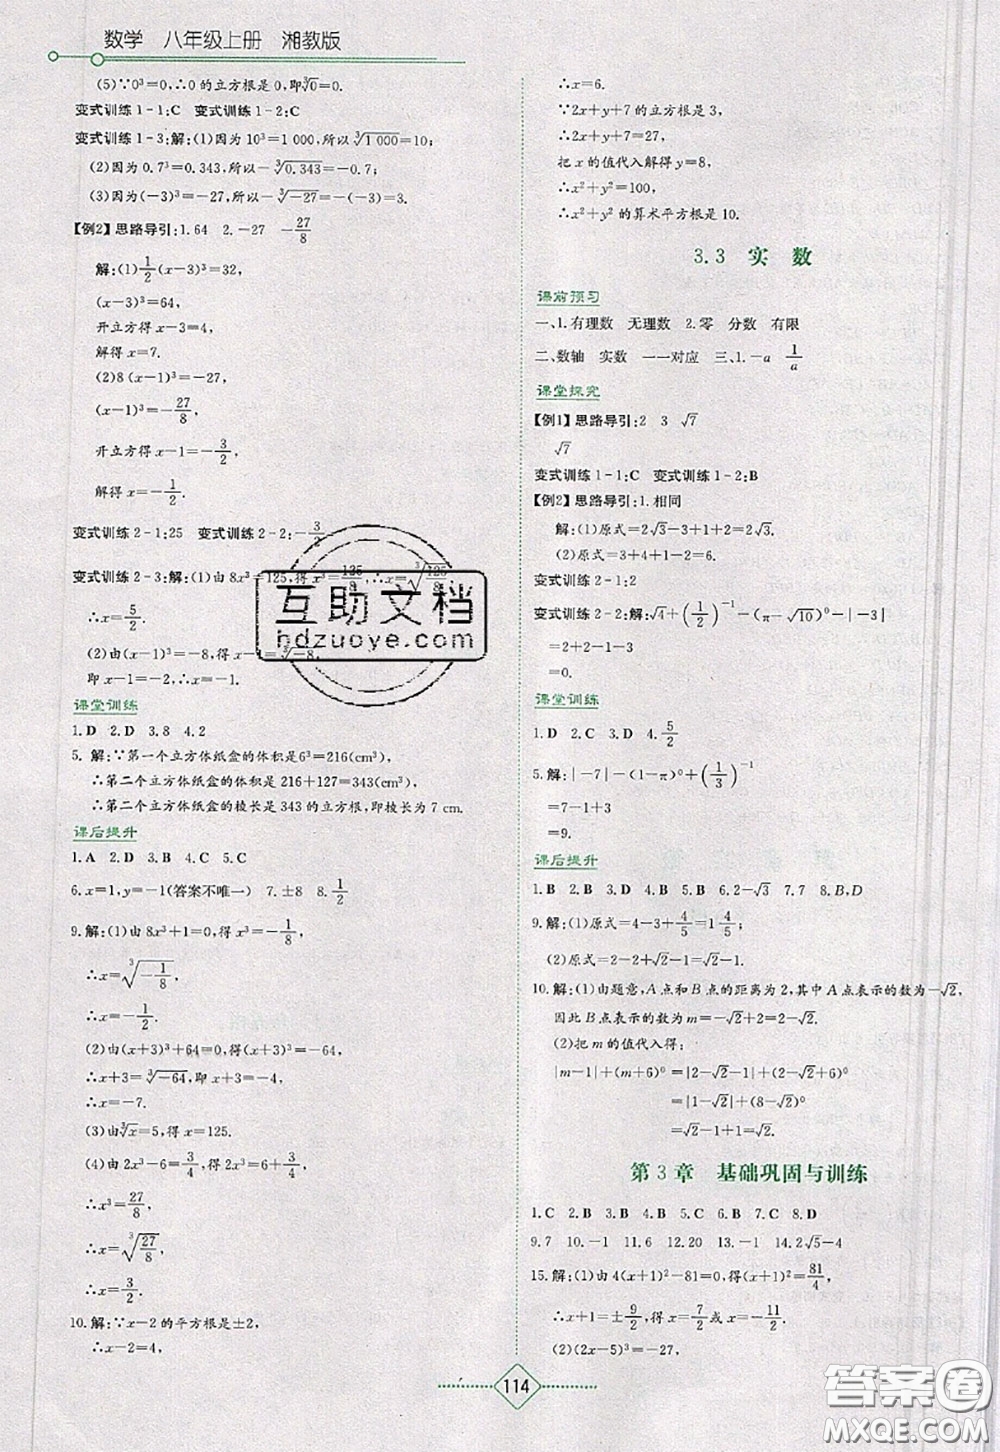 数学 八年级上册 湘教版
(5)∵0³=0,∴0的立方根是0,即∛0=0.
变式训练1-1:C 变式训练1-2:C
变式训练1-3:解:(1)因为10³=1 000,所以∛(1 000)=10;
(2)因为0.7³=0.343,所以-∛0.343=-0.7;
(3)因为(-3)³=-27,所以-∛(-27)=-(-3)=3.
【例2】思路导引:1.64 2.-27 -27/8
解:(1)1/2(x-3)³=32,
(x-3)³=64,
开立方得x-3=4,
解得x=7.
(2)8(x-1)³=-27,
(x-1)³=-27/8,
开立方得x-1=-3/2,
解得x=-1/2.
变式训练2-1:25 变式训练2-2:-3/2
变式训练2-3:解:(1)由8x³=125,得x³=125/8,∴x=∛(125/8),
∴x=5/2.
(2)由(-x)³=-8,得-x=∛(-8),
即-x=-2,∴x-1=-1.
课堂训练
1.D 2.D 3.8 4.2
5.解:∵第一个立方体纸盒的体积是6³=216(cm³)
∴第二个立方体纸盒的体积是216+127=343(cm³)
∴第二个立方体纸盒的棱长是343的立方根,即棱长为7 cm.
课后提升
1.A 2.D 3.B 4.C 5.C
6.x=1,y=-1(答案不唯一) 7.±8 8.1/2
9.解:(1)由8x³+1=0,得x³=-1/8,
∴x=∛(-1/8),
∴x=-1/2.
(2)由(x+3)³+64=0,得(x+3)³=-64,
∴x+3=∛(-64),即x+3=-4,
∴x=-7.
(3)由∛x=5,得x=125.
(4)由2x³-6=3/4,得2x³=6+3/4,
∴x³=27/8,
∴x=∛(27/8),
∴x=3/2.
10.解:∵x-2的平方根是±2,
∴x-2=4,
∴x=6.
∵2x+y+7的立方根是3,
∴2x+y+7=27,
把x的值代入解得y=8,
∴x²+y²=100,
∴x²+y²的算术平方根是10.
3.3 实 数
课前预习
一、1.有理数 无理数 2.零 分数 有限
二、数轴 实数 一一对应 三、1.-a 1/a
课堂探究
【例1】思路导引:2 3 √7
√7
变式训练1-1:C 变式训练1-2:B
【例2】思路导引:1.相同
解:(1)原式=2√3-3+1+2=2√3.
(2)原式=3+4-1=6.
变式训练2-1:2
变式训练2-2:解:√4+(1/2)⁻¹-(π-√10)⁰-|-3|
=2+2-1-3
=0.
课堂训练
1.D 2.C 3.D 4.5/2
5.解:|-7|-(1-π)⁰+(1/3)⁻¹
=7-1+3
=9.
课后提升
1.B 2.B 3.D 4.C 5.D 6.2-√3 7.7 8.B,D
9.解:(1)原式=4-3+4/5=1 4/5;
(2)原式=2-2+√2-1=√2-1.
10.解:(1)由题意,A点和B点的距离为2,其中A点表示的数为-√2,
因此B点表示的数为m=-√2+2=2-√2.
(2)把m的值代入得:
|m-1|+(m+6)⁰=|2-√2-1|+(2-√2+6)⁰
=|1-√2|+(8-√2)⁰
=√2-1+1=√2.
第3章 基础巩固与训练
1.C 2.B 3.B 4.B 5.D 6.D 7.C 8.D
9.7 10.-1 11.6 12.20 13.-1 14.2√5-4
15.解:(1)由4(x+1)²-81=0,得(x+1)²=81/4,
∴x+1=±9/2,得x=7/2或x=-11/2.
(2)(2x-5)³=-27,
114
互助文档
hdzuoye.com
答案圈
MXQE.COM